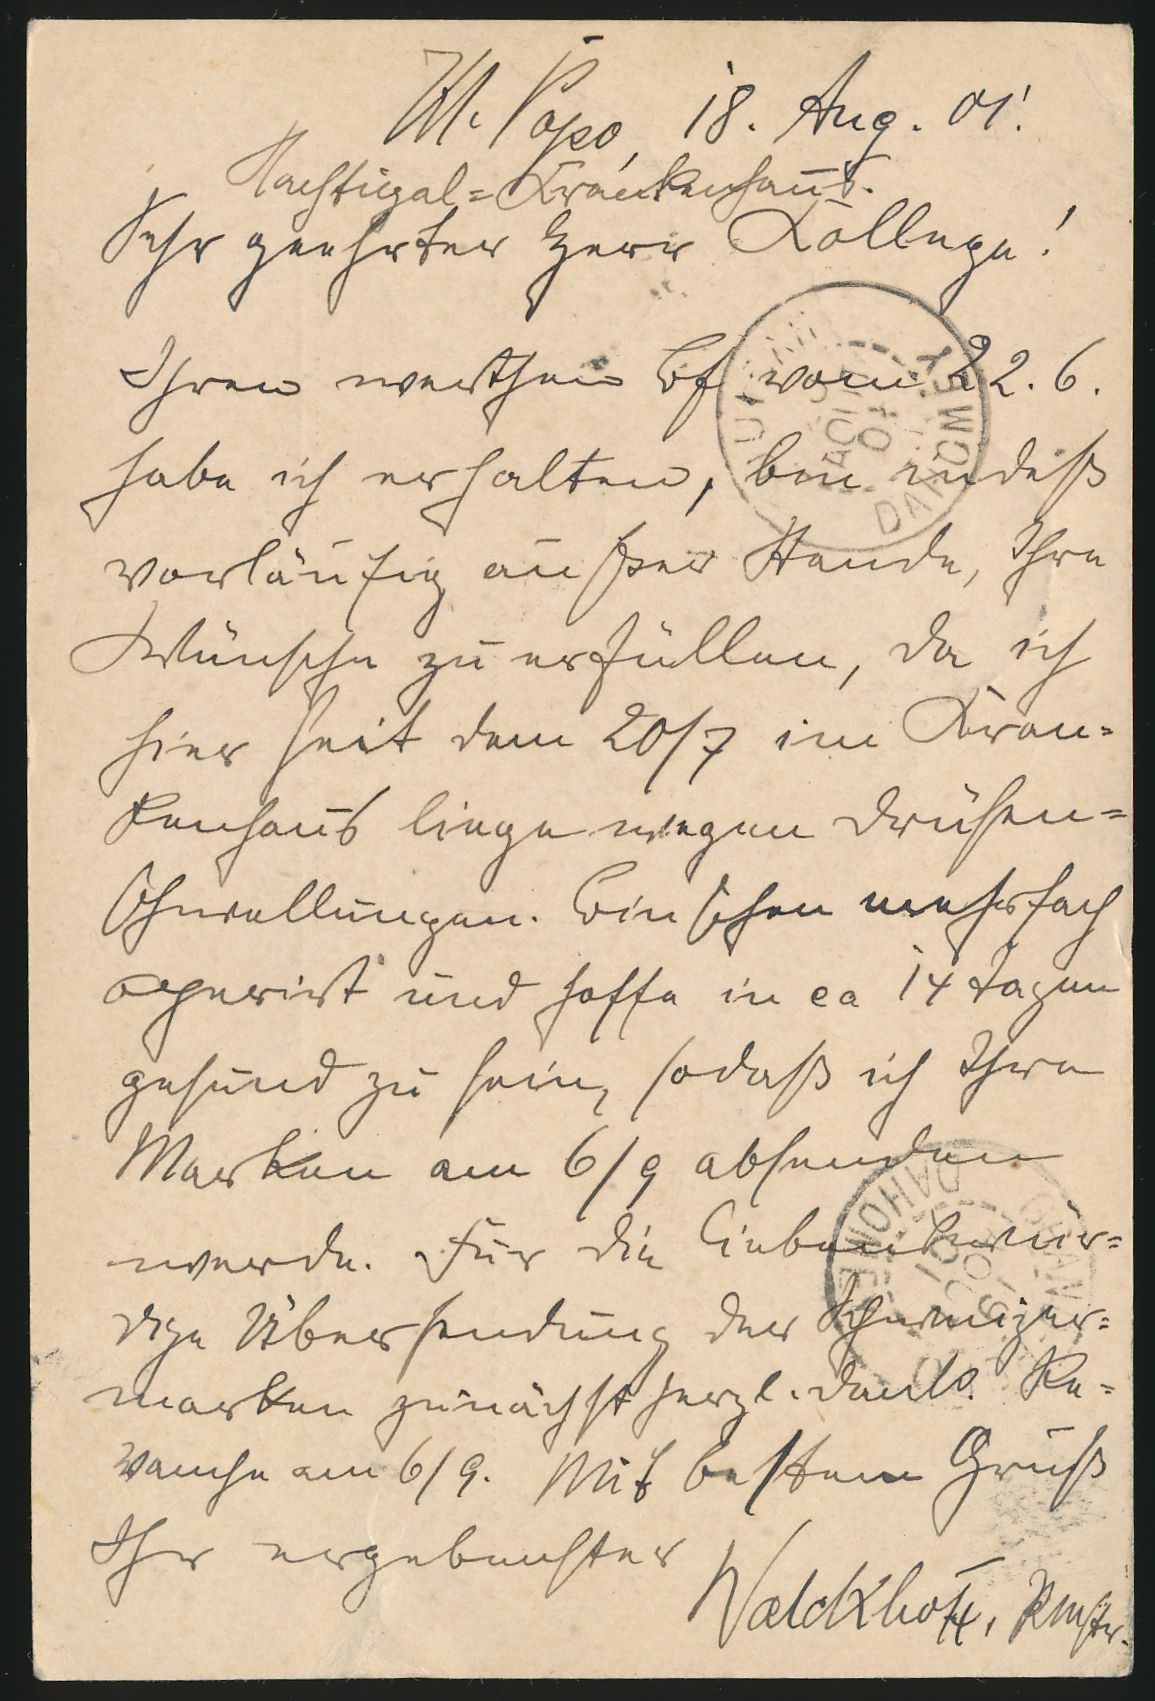 Kl. Popo, 18. Aug. 01!
Nachtigal=Krankenhaus.
Sehr geehrter Herr Kollege!
Ihren werthen Bf vom 22. 6.
habe ich erhalten, bin indeß
vorläufig außer Stande, Ihre
Wünsche zu erfüllen, da ich
hier seit dem 20/7 im Kran=
kenhaus liege wegen Drüsen=
schwellungen. Bin schon mehrfach
operirt und hoffe in ca 14 Tagen
gesund zu sein, sodaß ich Ihre
Marken am 6/9 absenden
werde. Für die liebenswür=
dige Übersendung der Schweizer=
marken zunächst herzl. Dank. Re=
vanche am 6/9. Mit bestem Gruß
Ihr ergebenster
Waldkhoff,
DAHOMEY
DAHOMEY